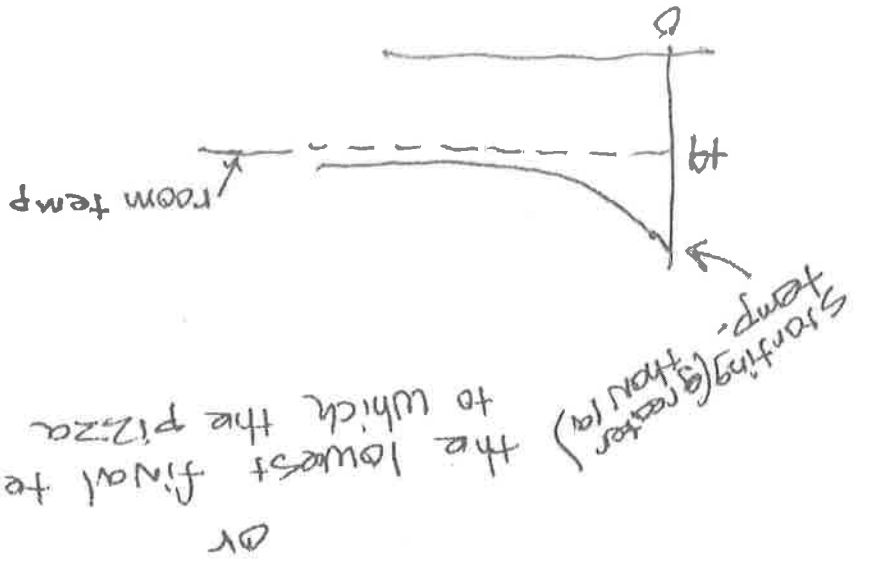 or
the lowest final te
to which the pizza
Starting (greater
temp. than
room temp
0